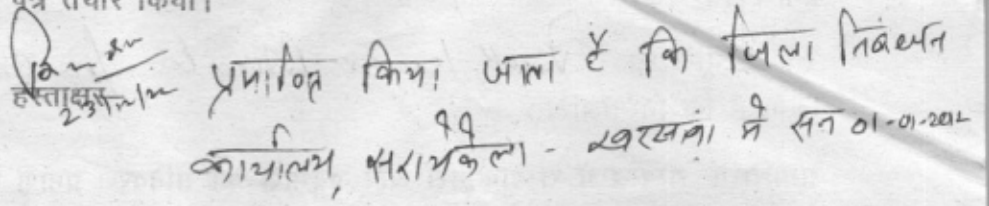 पत्र तैयार किया।
हस्ताक्षर
प्रमाणित किया जाता है कि जिला निबंधन
कार्यालय, सरायकेला - खरसवां में सन 01-01-2012